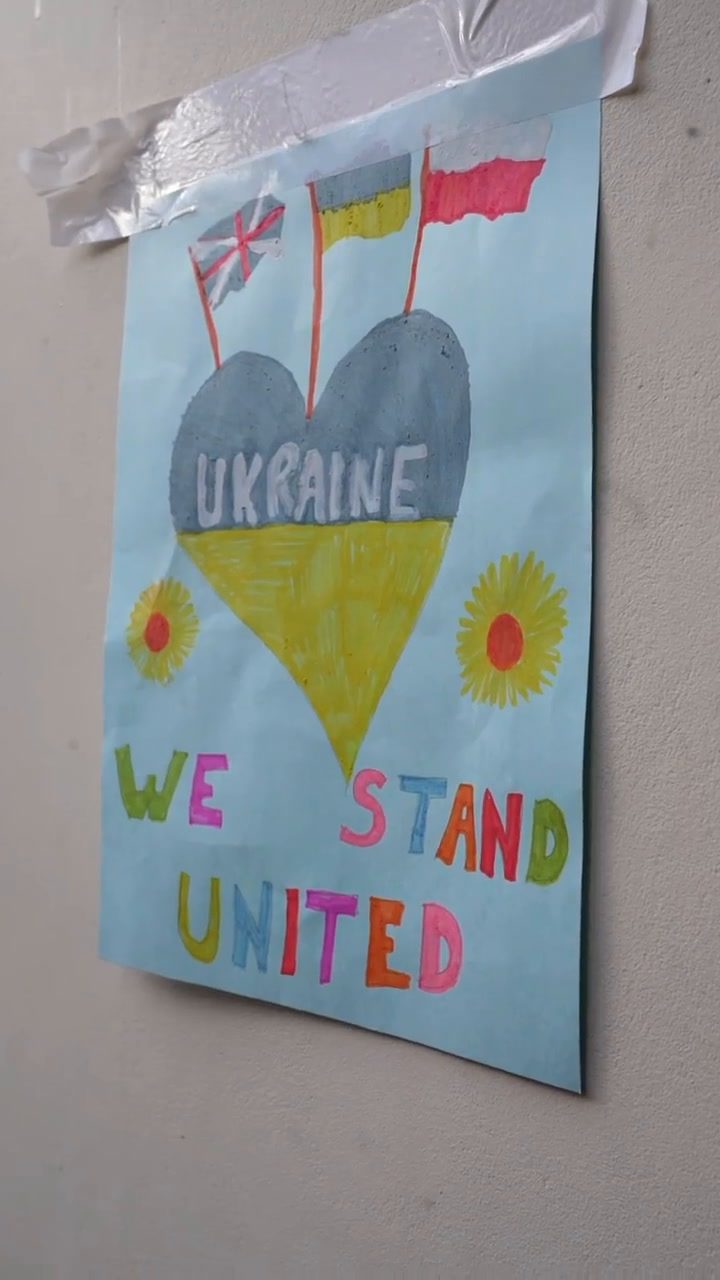 UKRAINE
WE STAND
UNITED